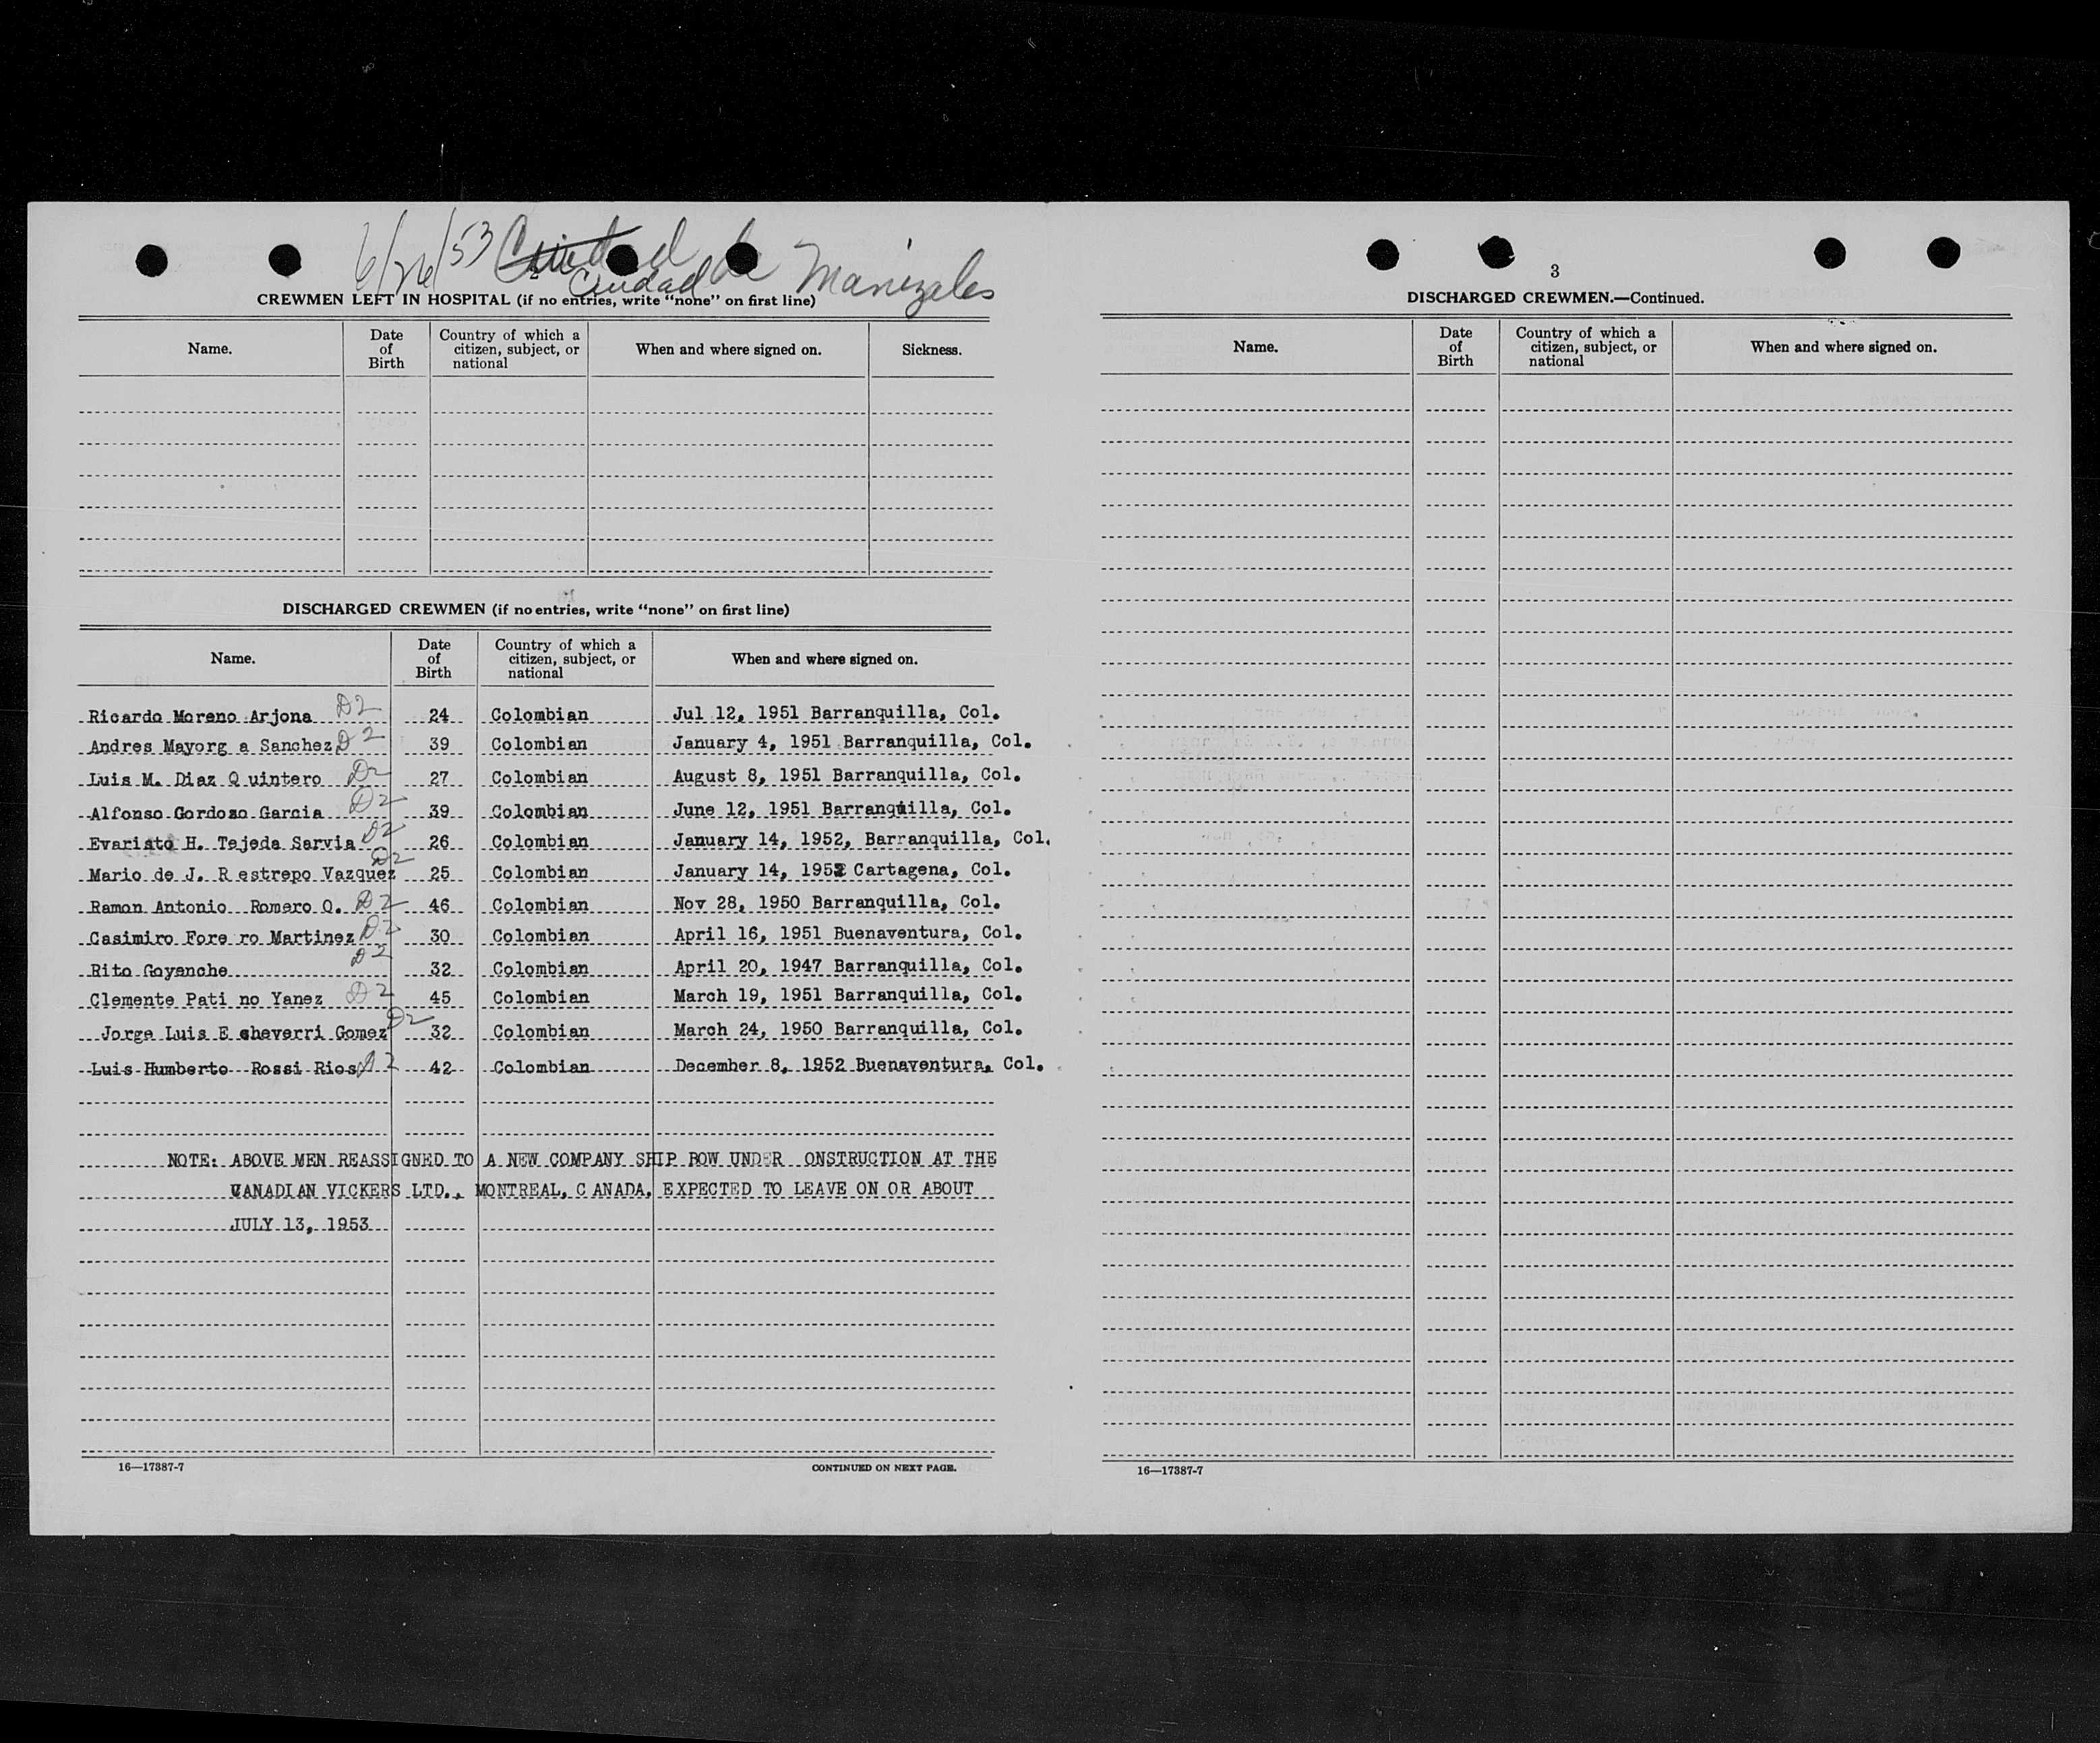 6/26/53 Ciudad de Manizales
Ciudad
CREWMEN LEFT IN HOSPITAL (if no entries, write "none" on first line)
Name. Date of Birth Country of which a citizen, subject, or national When and where signed on. Sickness.
DISCHARGED CREWMEN (if no entries, write "none" on first line)
Name. Date of Birth Country of which a citizen, subject, or national When and where signed on.
Ricardo Moreno Arjona D2 24 Colombian Jul 12, 1951 Barranquilla, Col.
Andres Mayorg a Sanchez D2 39 Colombian January 4, 1951 Barranquilla, Col.
Luis M. Diaz Q uintero D2 27 Colombian August 8, 1951 Barranquilla, Col.
Alfonso Cordozo Garcia D2 39 Colombian June 12, 1951 Barranquilla, Col.
Evaristo H. Tejeda Sarvia D2 26 Colombian January 14, 1952, Barranquilla, Col.
Mario de J. R estrepo Vazquez D2 25 Colombian January 14, 1952 Cartagena, Col.
Ramon Antonio Romero O. D2 46 Colombian Nov 28, 1950 Barranquilla, Col.
Casimiro Fore ro Martinez D2 30 Colombian April 16, 1951 Buenaventura, Col.
Rito Goyenche D2 32 Colombian April 20, 1947 Barranquilla, Col.
Clemente Pati no Yanez D2 45 Colombian March 19, 1951 Barranquilla, Col.
Jorge Luis E cheverri Gomez D2 32 Colombian March 24, 1950 Barranquilla, Col.
Luis Humberto Rossi Rios D2 42 Colombian December 8, 1952 Buenaventura, Col.
NOTE: ABOVE MEN REASSIGNED TO A NEW COMPANY SHIP BOW UNDER ONSTRUCTION AT THE
CANADIAN VICKERS LTD., MONTREAL, C ANADA, EXPECTED TO LEAVE ON OR ABOUT
JULY 13, 1953
16—17387-7 CONTINUED ON NEXT PAGE.
3
DISCHARGED CREWMEN.—Continued.
Name. Date of Birth Country of which a citizen, subject, or national When and where signed on.
16—17387-7